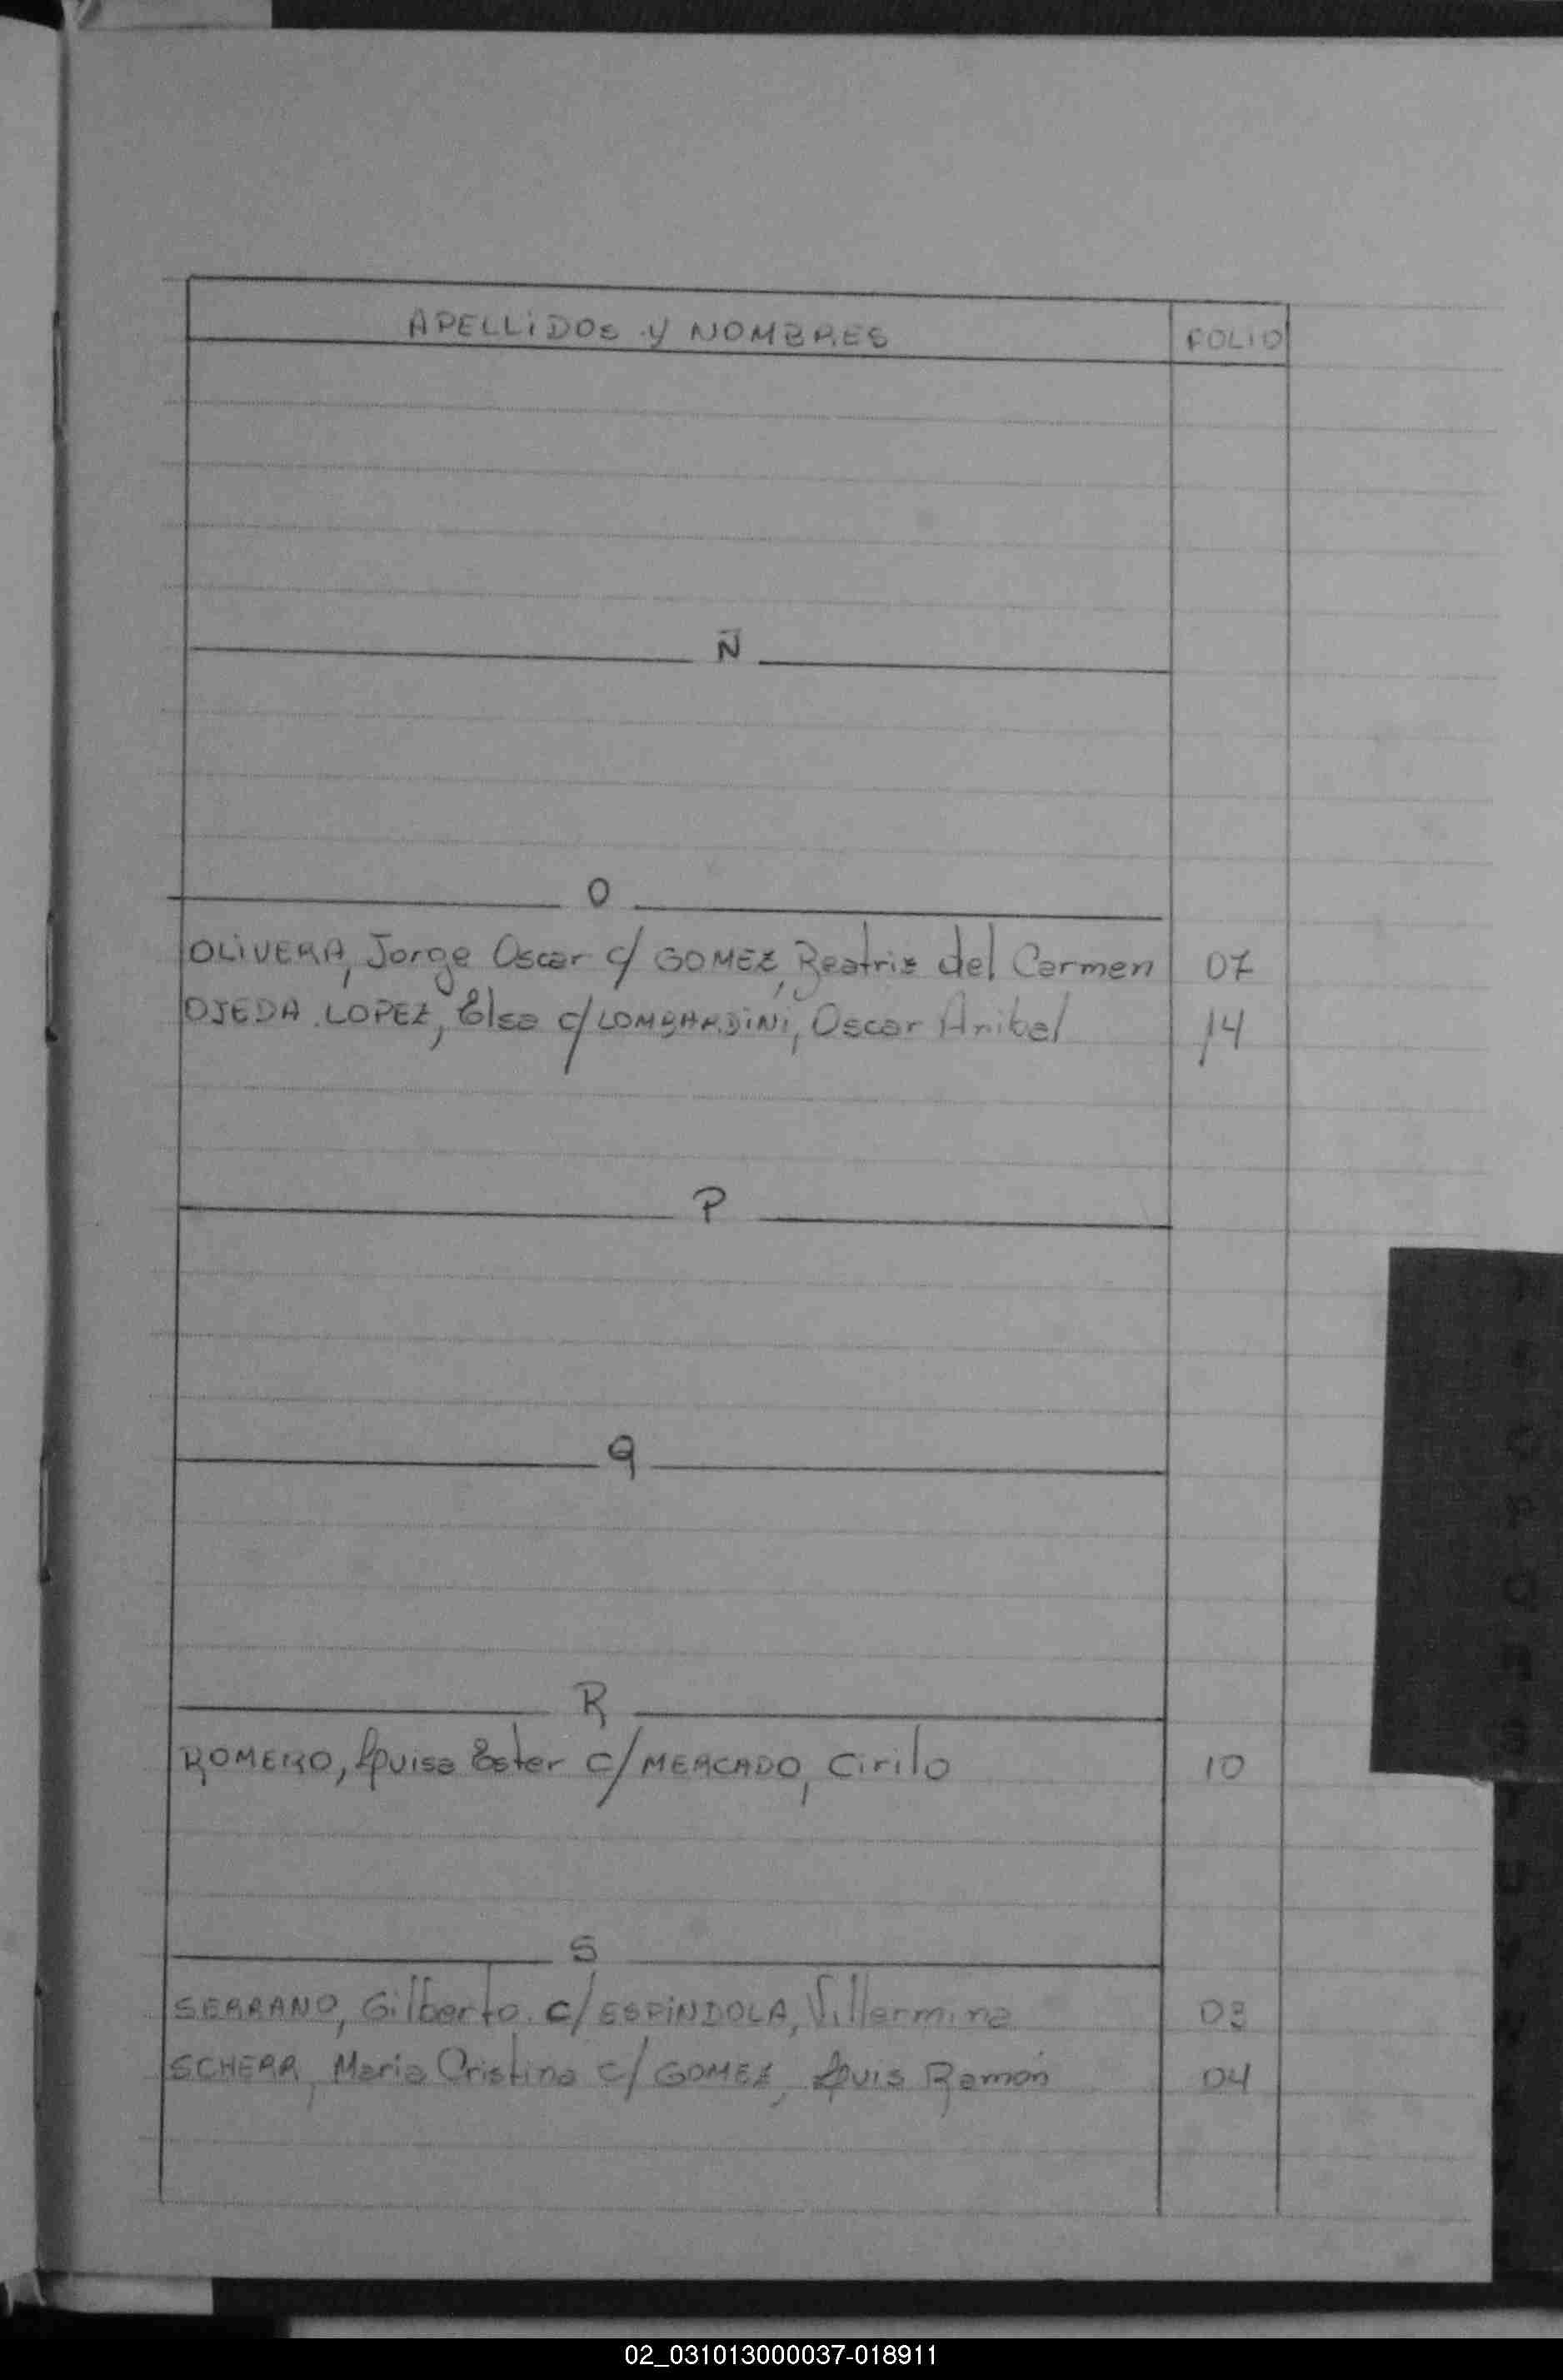 APELLIDOS Y NOMBRES FOLIO
Ñ
O
OLIVERA, Jorge Oscar c/ GOMEZ, Beatriz del Carmen 07
OJEDA LOPEZ, Elsa c/ LOMBARDINI, Oscar Anibal 14
P
Q
R
ROMERO, Luisa Ester c/ MERCADO, Cirilo 10
S
SERRANO, Gilberto c/ ESPINDOLA, Villermina 03
SCHERR, Maria Cristina c/ GOMEZ, Luis Ramón 04
02_031013000037-018911